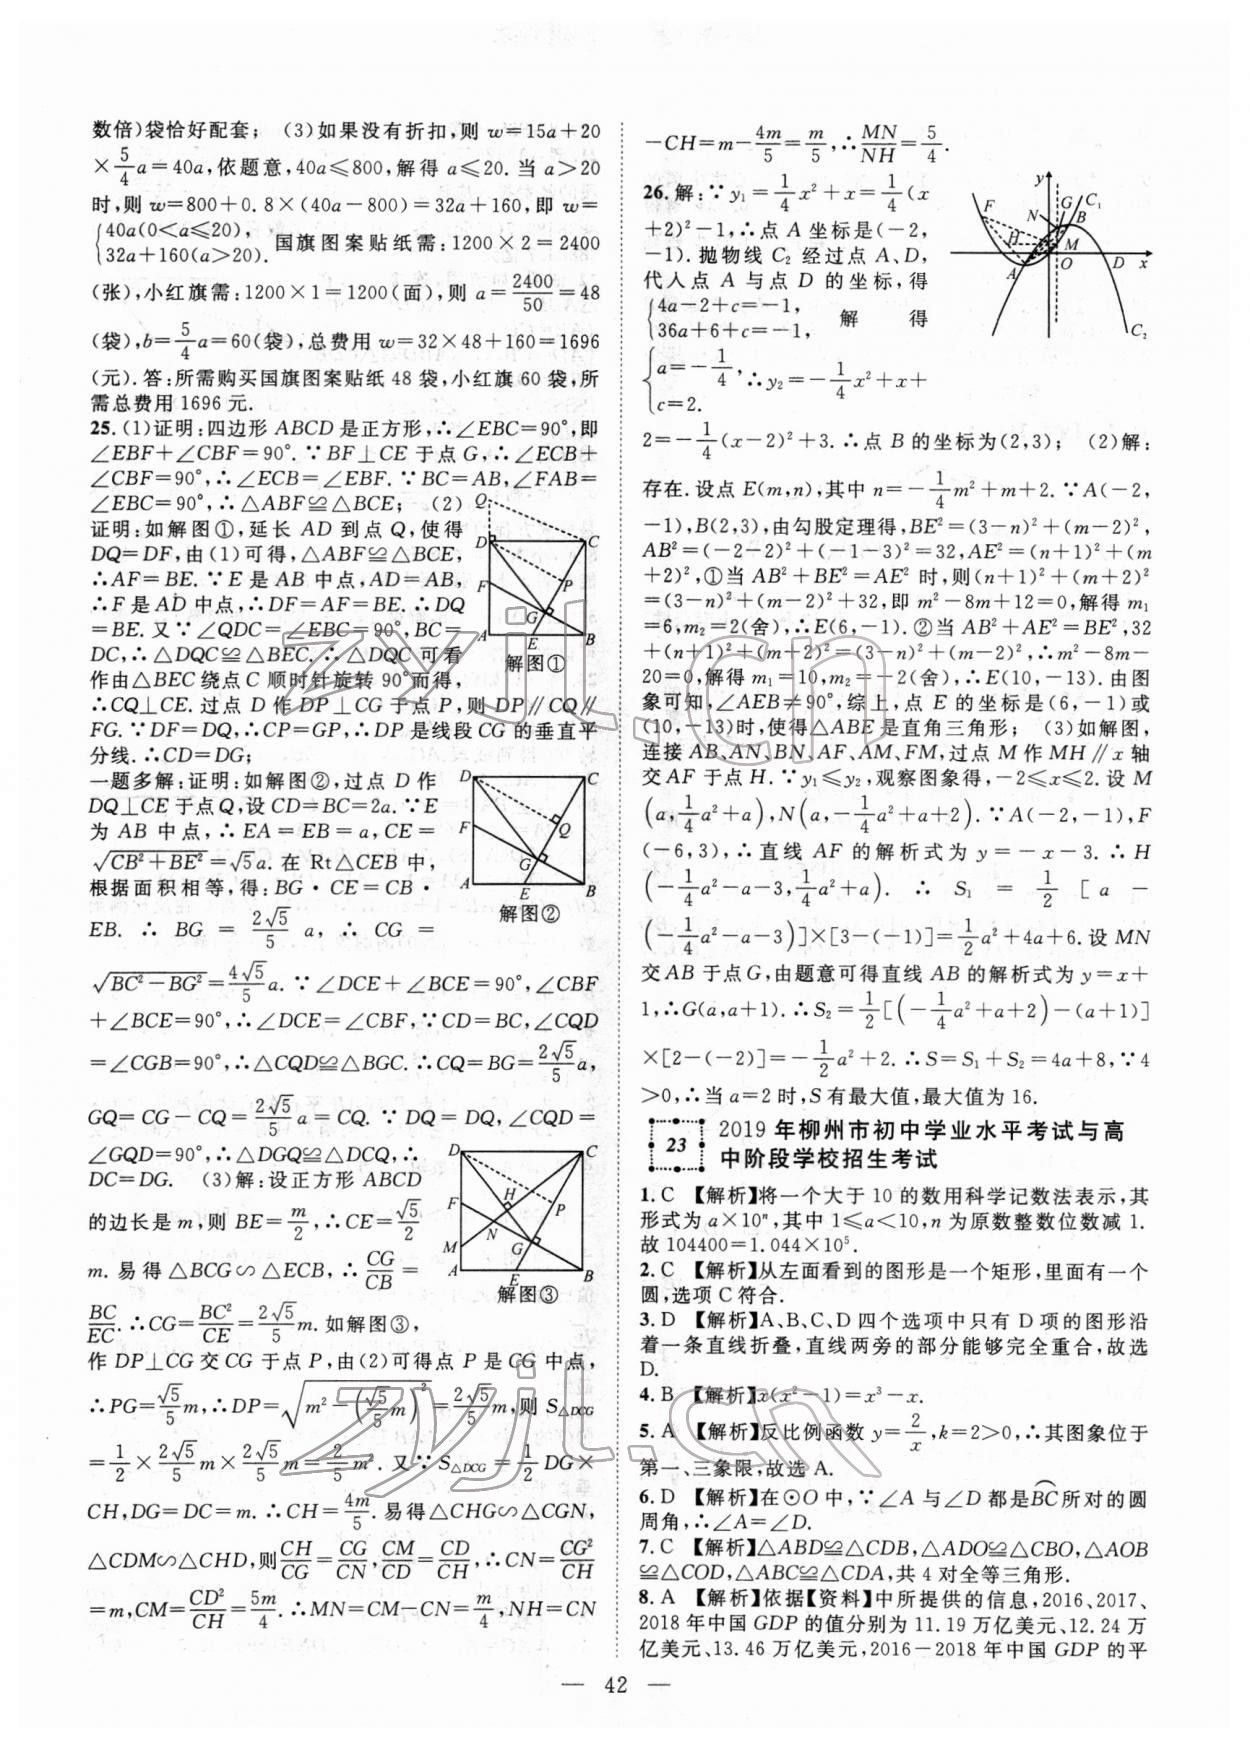 数倍)袋恰好配套；(3)如果没有折扣,则 w=15a+20
×5/4a=40a,依题意,40a≤800,解得 a≤20. 当 a>20
时,则 w=800+0.8×(40a-800)=32a+160,即 w=
{40a(0<a≤20), 32a+160(a>20). 国旗图案贴纸需:1200×2=2400
(张),小红旗需:1200×1=1200(面),则 a=2400/50=48
(袋),b=5/4a=60(袋),总费用 w=32×48+160=1696
(元).答:所需购买国旗图案贴纸 48 袋,小红旗 60 袋,所
需总费用1696 元.
25.(1)证明:四边形 ABCD 是正方形,∴∠EBC=90°,即
∠EBF+∠CBF=90°.∵BF⊥CE于点G,∴∠ECB+
∠CBF=90°,∴∠ECB=∠EBF.∵BC=AB,∠FAB=
∠EBC=90°,∴△ABF≌△BCE；(2)
证明:如解图①,延长 AD 到点 Q,使得
DQ=DF,由(1)可得,△ABF≌△BCE,
∴AF=BE.∵E 是 AB 中点,AD=AB,
∴F是AD 中点,∴DF=AF=BE.∴DQ
=BE.又∵∠QDC=∠EBC=90°,BC=
DC,∴△DQC≌△BEC.∴△DQC 可看
作由△BEC绕点C 顺时针旋转 90°而得,
∴CQ⊥CE. 过点 D 作 DP⊥CG 于点 P,则 DP∥CQ∥
FG.∵DF=DQ,∴CP=GP,∴DP是线段 CG 的垂直平
分线.∴CD=DG；
Q
D C
F P
G
A E B
解图①
一题多解:证明:如解图②,过点 D 作
DQ⊥CE于点Q,设CD=BC=2a.∵E
为 AB 中点,∴EA=EB=a,CE=
√(CB²+BE²)=√5a. 在 Rt△CEB 中,
根据面积相等,得:BG·CE=CB·
EB. ∴ BG = 2√5/5 a, ∴ CG =
D C
F Q
G
A E B
解图②
√(BC²-BG²)=4√5/5a.∵∠DCE+∠BCE=90°,∠CBF
+∠BCE=90°,∴∠DCE=∠CBF,∵CD=BC,∠CQD
=∠CGB=90°,∴△CQD≌△BGC.∴CQ=BG=2√5/5a,
GQ=CG-CQ=2√5/5a=CQ.∵DQ=DQ,∠CQD=
∠GQD=90°,∴△DGQ≌△DCQ,∴
DC=DG. (3)解:设正方形 ABCD
的边长是 m,则 BE=m/2,∴CE=√5/2
m. 易得△BCG∽△ECB,∴CG/CB=
BC/EC.∴CG=BC²/CE=2√5/5m.如解图③,
D C
F H P
N
M G
A E B
解图③
作 DP⊥CG 交 CG 于点 P,由(2)可得点 P 是 CG 中点,
∴PG=√5/5m,∴DP=√(m²-(√5/5m)²)=2√5/5m,则 S△DCG
=1/2×2√5/5m×2√5/5m=2/5m².又∵S△DCG=1/2DG×
CH,DG=DC=m.∴CH=4m/5.易得△CHG∽△CGN,
△CDM∽△CHD,则CH/CG=CG/CN,CM/CD=CD/CH,∴CN=CG²/CH
=m,CM=CD²/CH=5m/4.∴MN=CM-CN=m/4,NH=CN
-CH=m-4m/5=m/5,∴MN/NH=5/4.
26.解:∵y₁=1/4x²+x=1/4(x
+2)²-1,∴点 A 坐标是(-2,
-1). 抛物线 C₂ 经过点 A、D,
代入点 A 与点 D 的坐标,得
{4a-2+c=-1, 36a+6+c=-1, 解 得
{a=-1/4, c=2. ∴y₂=-1/4x²+x+
y G C₁
F N B
H M
A O D x
C₂
2=-1/4(x-2)²+3.∴点 B 的坐标为(2,3)；(2)解:
存在.设点E(m,n),其中 n=-1/4m²+m+2.∵A(-2,
-1),B(2,3),由勾股定理得,BE²=(3-n)²+(m-2)²,
AB²=(-2-2)²+(-1-3)²=32,AE²=(n+1)²+(m
+2)²,①当 AB²+BE²=AE² 时,则(n+1)²+(m+2)²
=(3-n)²+(m-2)²+32,即 m²-8m+12=0,解得 m₁
=6,m₂=2(舍),∴E(6,-1).②当 AB²+AE²=BE²,32
+(n+1)²+(m+2)²=(3-n)²+(m-2)²,∴m²-8m-
20=0,解得 m₁=10,m₂=-2(舍),∴E(10,-13).由图
象可知,∠AEB≠90°,综上,点 E 的坐标是(6,-1)或
(10,-13)时,使得△ABE 是直角三角形；(3)如解图,
连接 AB、AN、BN、AF、AM、FM,过点 M 作 MH∥x 轴
交 AF 于点 H.∵y₁≤y₂,观察图象得,-2≤x≤2.设 M
(a,1/4a²+a),N(a,-1/4a²+a+2).∵A(-2,-1),F
(-6,3),∴直线 AF 的解析式为 y=-x-3.∴H
(-1/4a²-a-3,1/4a²+a). ∴ S₁ = 1/2 [a -
(-1/4a²-a-3)]×[3-(-1)]=1/2a²+4a+6.设 MN
交AB于点G,由题意可得直线 AB 的解析式为 y=x+
1,∴G(a,a+1).∴S₂=1/2[(-1/4a²+a+2)-(a+1)]
×[2-(-2)]=-1/2a²+2.∴S=S₁+S₂=4a+8,∵4
>0,∴当 a=2 时,S 有最大值,最大值为 16.
23 2019 年柳州市初中学业水平考试与高
中阶段学校招生考试
1.C 【解析】将一个大于 10 的数用科学记数法表示,其
形式为 a×10ⁿ,其中 1≤a<10,n 为原数整数位数减 1.
故 104400=1.044×10⁵.
2.C 【解析】从左面看到的图形是一个矩形,里面有一个
圆,选项 C 符合.
3.D 【解析】A、B、C、D 四个选项中只有 D 项的图形沿
着一条直线折叠,直线两旁的部分能够完全重合,故选
D.
4.B 【解析】x(x²-1)=x³-x.
5.A 【解析】反比例函数 y=2/x,k=2>0,∴其图象位于
第一、三象限,故选 A.
6.D 【解析】在⊙O中,∵∠A 与∠D 都是B͡C所对的圆
周角,∴∠A=∠D.
7.C 【解析】△ABD≌△CDB,△ADO≌△CBO,△AOB
≌△COD,△ABC≌△CDA,共 4 对全等三角形.
8.A 【解析】依据【资料】中所提供的信息,2016、2017、
2018 年中国 GDP 的值分别为 11.19 万亿美元、12.24 万
亿美元、13.46 万亿美元,2016-2018 年中国 GDP 的平
— 42 —
zyjl.cn
zyjl.cn